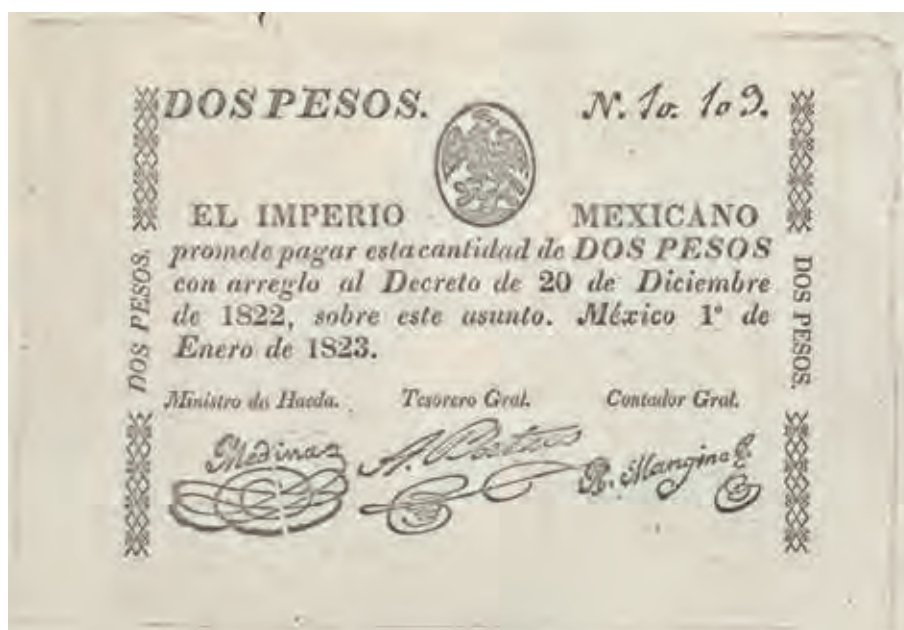 DOS PESOS. N. 10. 109.
EL IMPERIO MEXICANO
promete pagar esta cantidad de DOS PESOS
con arreglo al Decreto de 20 de Diciembre
de 1822, sobre este asunto. México 1º de
Enero de 1823.
Ministro de Hacda. Tesorero Gral. Contador Gral.
Medina A. Batres R. Mangino
DOS PESOS.
DOS PESOS.